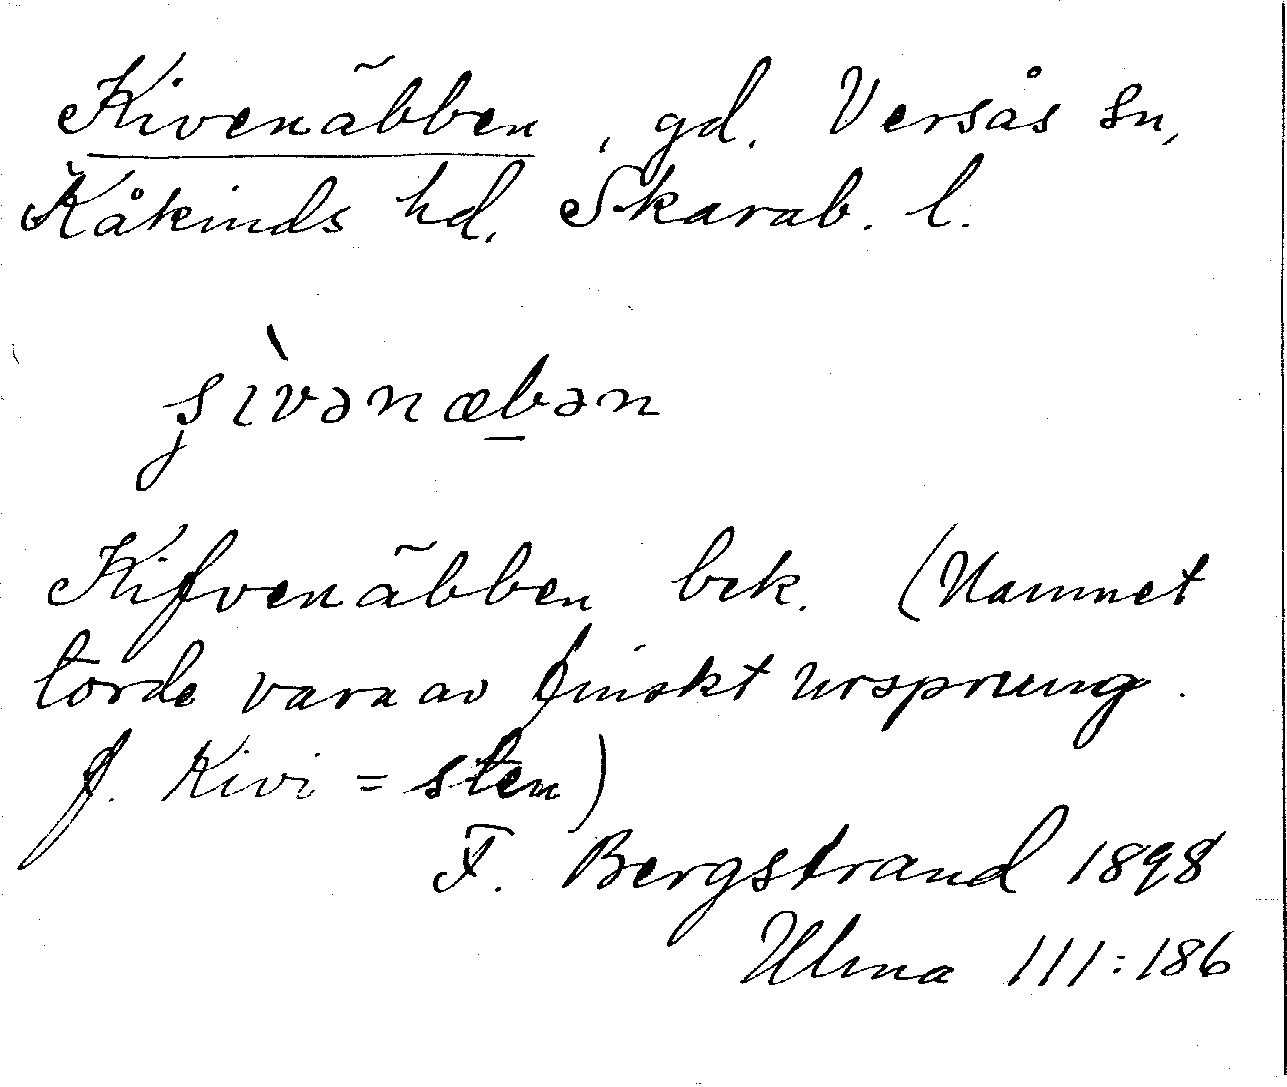 Kivenäbben, gd. Versås sn,
Kåkinds hd. Skarab. l.
ʂìvənæbən
Kifvenäbben brk. (Namnet
torde vara av finskt ursprung.
f. Kivi = sten)
F. Bergstrand 1898
Ulma 111:186